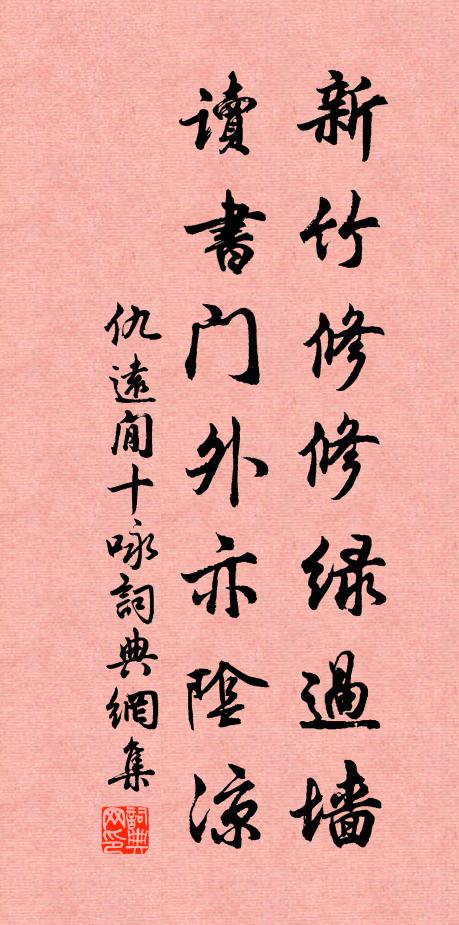 新竹修修緑過墻
讀書門外亦陰涼
仇遠閒十咏詞典網集
詞典网印